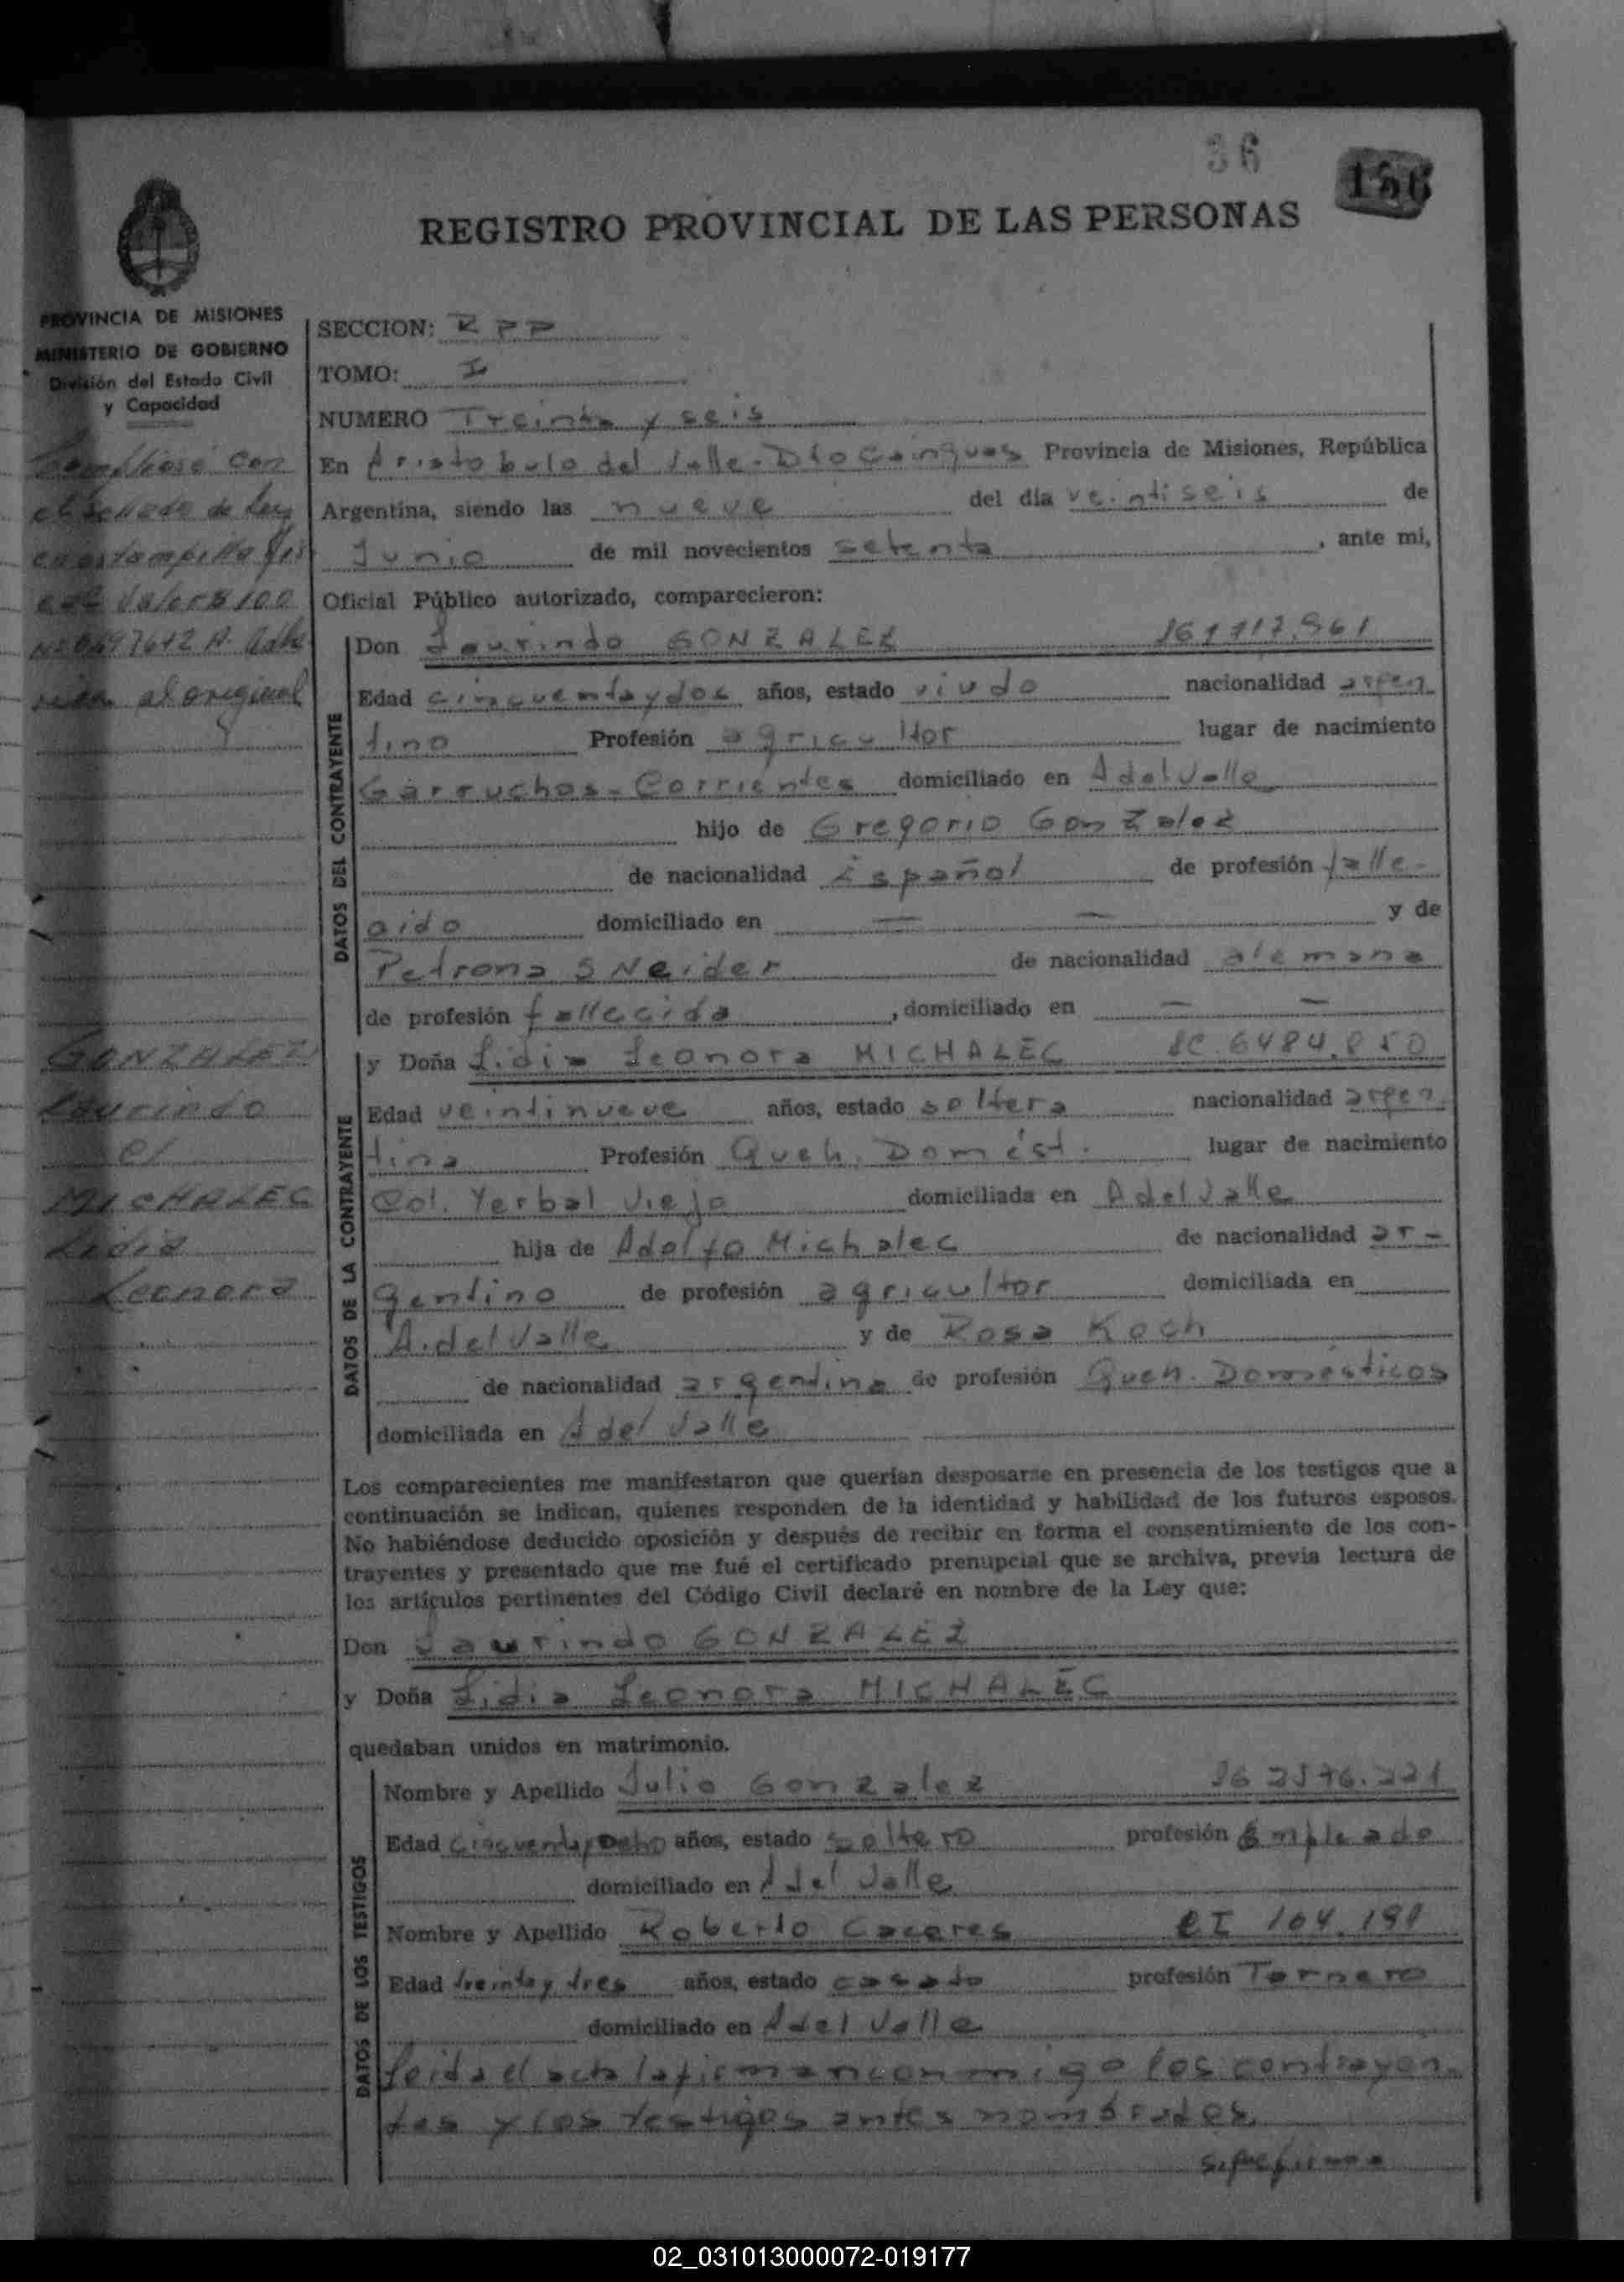 36
156
REGISTRO PROVINCIAL DE LAS PERSONAS
PROVINCIA DE MISIONES
MINISTERIO DE GOBIERNO
División del Estado Civil
y Capacidad
con
el sellado de Ley
en estampilla fis
cal valor $ 100
al original
GONZALEZ
Laurindo
c/
MICHALEC
Lidia
Leonora
SECCION: RPP
TOMO: I
NUMERO Treinta y seis
En Aristobulo del Valle - Dto Cainguas Provincia de Misiones, República
Argentina, siendo las nueve del día veintiseis de
Junio de mil novecientos setenta, ante mi,
Oficial Público autorizado, comparecieron:
DATOS DEL CONTRAYENTE
Don Laurindo GONZALEZ
Edad cincuenta y dos años, estado viudo nacionalidad argen
tino Profesión agricultor lugar de nacimiento
Garruchos - Corrientes domiciliado en A del Valle
hijo de Gregorio Gonzalez
de nacionalidad Español de profesión falle-
cido domiciliado en — — y de
Petrona SNeider de nacionalidad alemana
de profesión fallecida, domiciliado en — —
DATOS DE LA CONTRAYENTE
y Doña Lidia Leonora MICHALEC LC. 6484.850
Edad veintinueve años, estado soltera nacionalidad argen
tina Profesión Queh. Domést. lugar de nacimiento
Col. Yerbal Viejo domiciliada en A del Valle
hija de Adolfo Michalec de nacionalidad ar-
gentino de profesión agricultor domiciliada en
A. del Valle y de Rosa Koch
de nacionalidad argentina de profesión Queh. Domésticos
domiciliada en A del Valle
Los comparecientes me manifestaron que querían desposarse en presencia de los testigos que a
continuación se indican, quienes responden de la identidad y habilidad de los futuros esposos.
No habiéndose deducido oposición y después de recibir en forma el consentimiento de los con-
trayentes y presentado que me fué el certificado prenupcial que se archiva, previa lectura de
los artículos pertinentes del Código Civil declaré en nombre de la Ley que:
Don Laurindo GONZALEZ
y Doña Lidia Leonora MICHALEC
quedaban unidos en matrimonio.
DATOS DE LOS TESTIGOS
Nombre y Apellido Julio Gonzalez
Edad cincuenta y ocho años, estado soltero profesión Empleado
domiciliado en A del Valle
Nombre y Apellido Roberto Caceres CI 104.191
Edad treinta y tres años, estado casado profesión Tornero
domiciliado en A del Valle
Leida el acta la firman conmigo los contrayen-
tes y los testigos antes nombrados
02_031013000072-019177